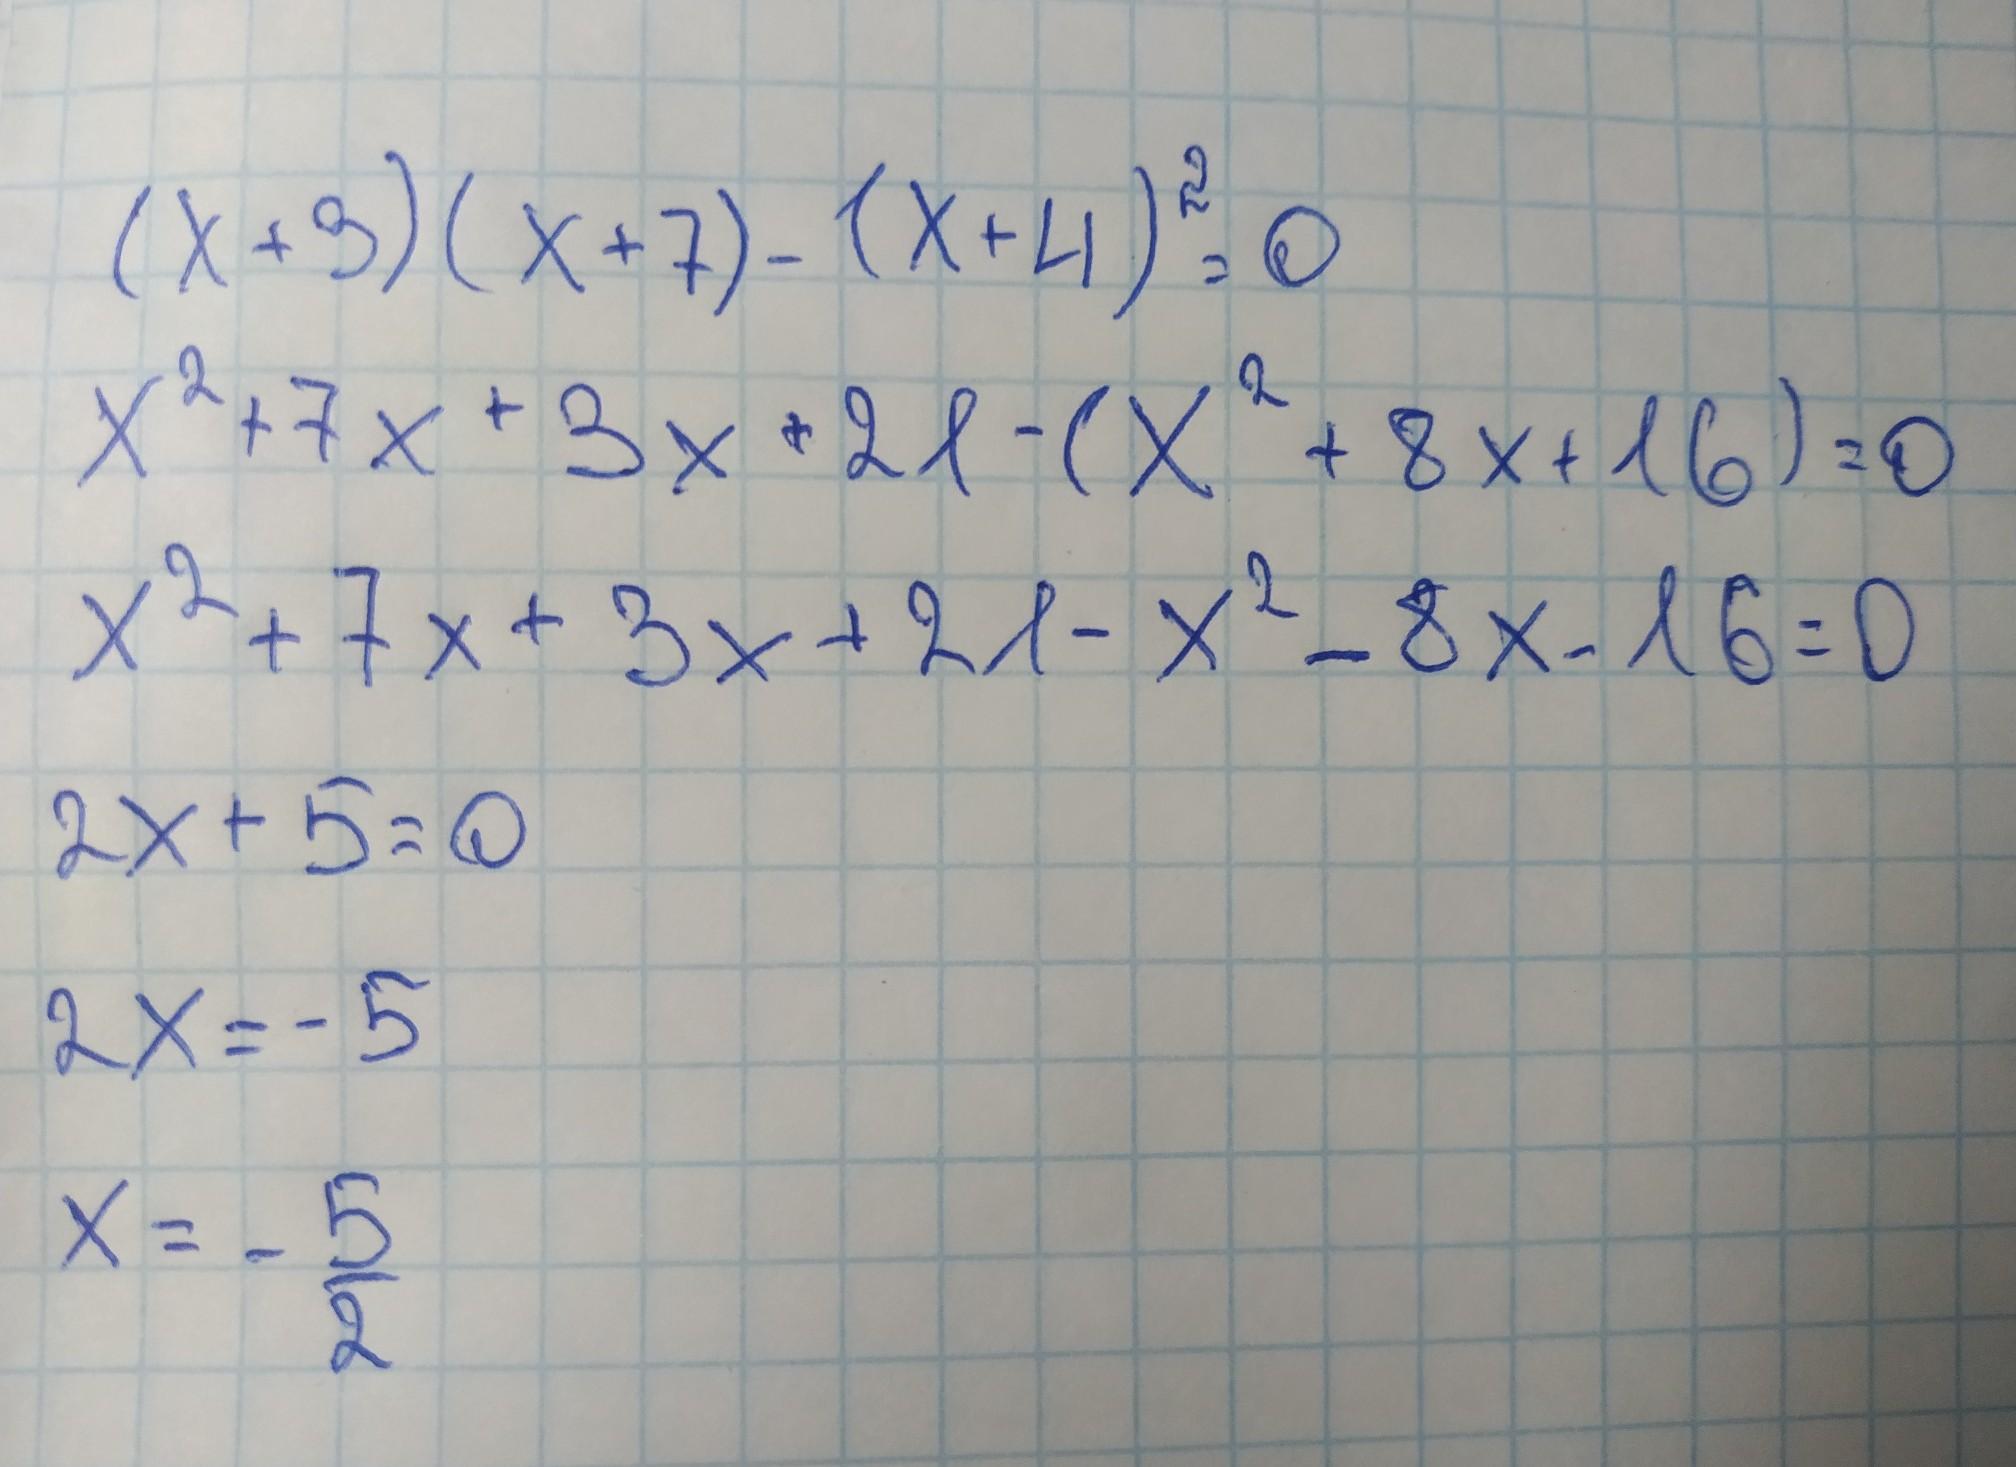 (x+3)(x+7)-(x+4)²=0
x²+7x+3x+21-(x²+8x+16)=0
x²+7x+3x+21-x²-8x-16=0
2x+5=0
2x=-5
x=-5/2